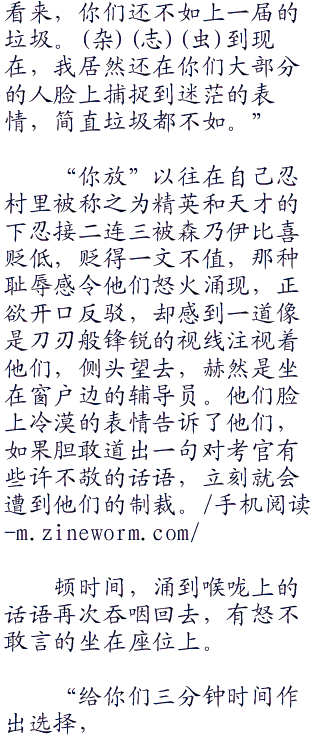 看来，你们还不如上一届的
垃圾。(杂)(志)(虫)到现
在，我居然还在你们大部分
的人脸上捕捉到迷茫的表
情，简直垃圾都不如。”
“你放”以往在自己忍
村里被称之为精英和天才的
下忍接二连三被森乃伊比喜
贬低，贬得一文不值，那种
耻辱感令他们怒火涌现，正
欲开口反驳，却感到一道像
是刀刃般锋锐的视线注视着
他们，侧头望去，赫然是坐
在窗户边的辅导员。他们脸
上冷漠的表情告诉了他们，
如果胆敢道出一句对考官有
些许不敌的话语，立刻就会
遭到他们的制裁。/手机阅读
-m.zineworm.com/
顿时间，涌到喉咙上的
话语再次吞咽回去，有怒不
敢言的坐在座位上。
“给你们三分钟时间作
出选择，